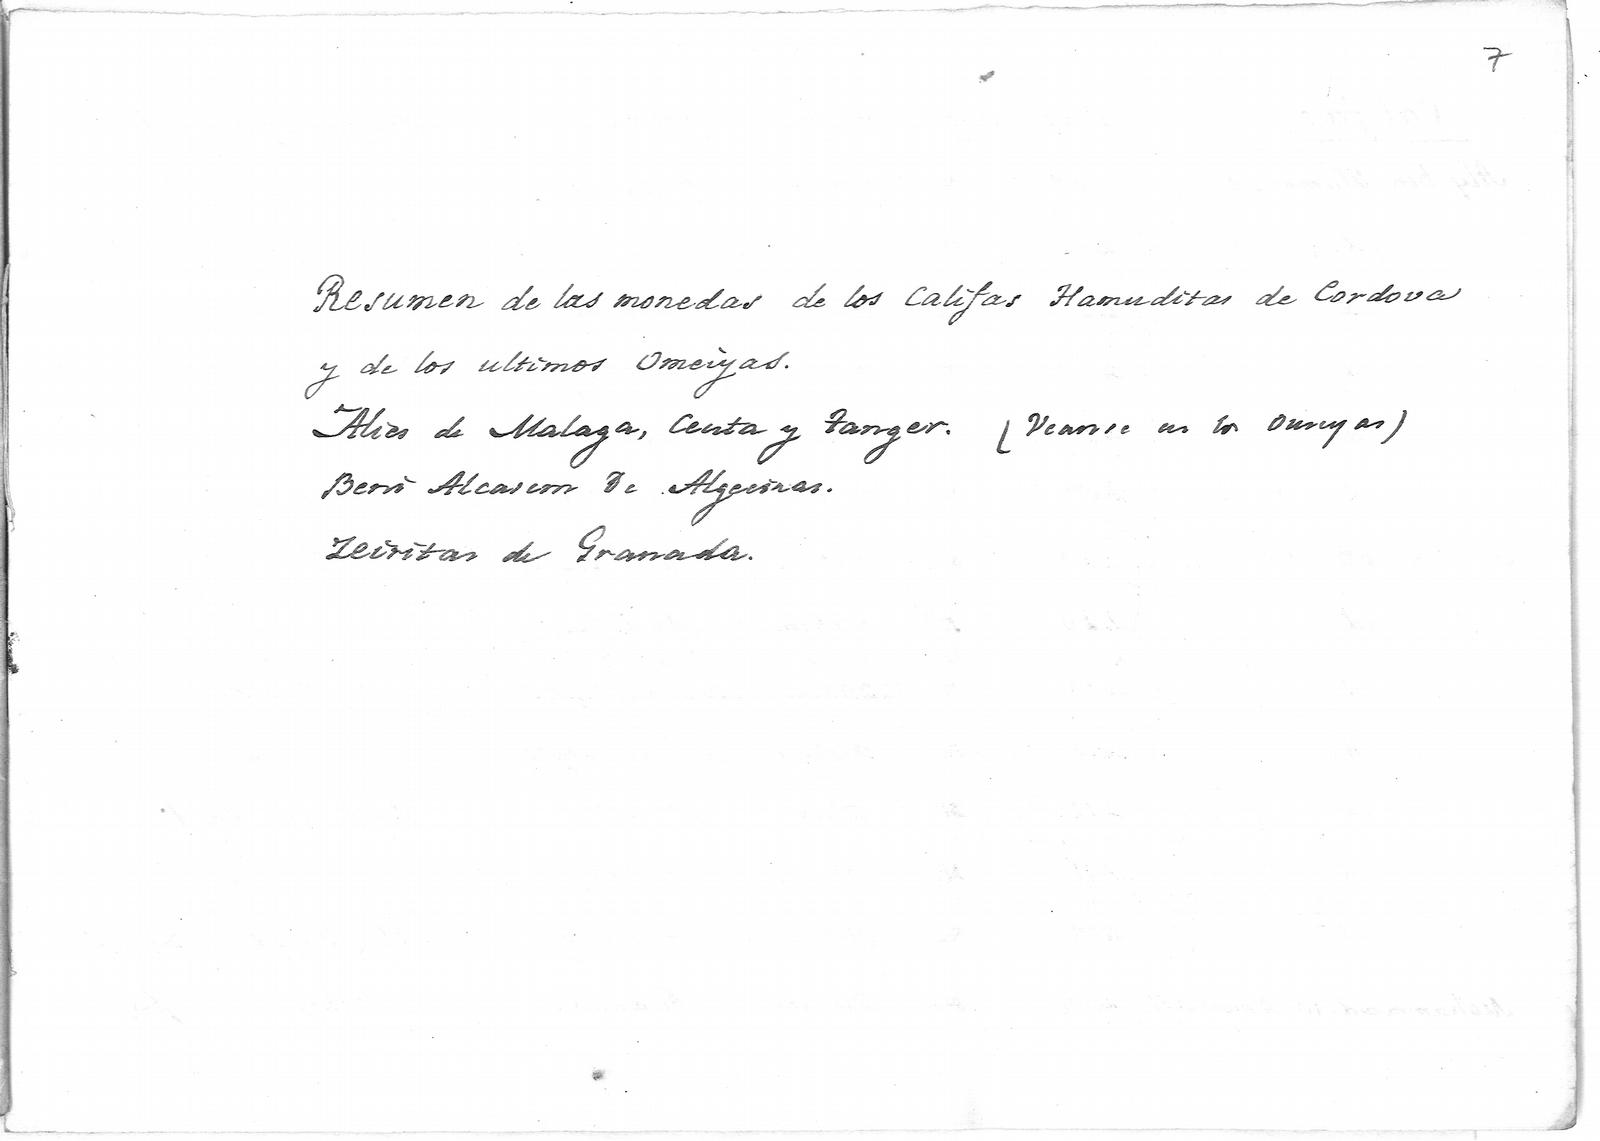 7
Resumen de las monedas de los Califas Hamuditas de Cordova
y de los ultimos Omeiyas.
Alies de Malaga, Ceuta y Tanger. (Veanse en los Omeyas)
Beni Alcasem de Algeciras.
Zeiritas de Granada.